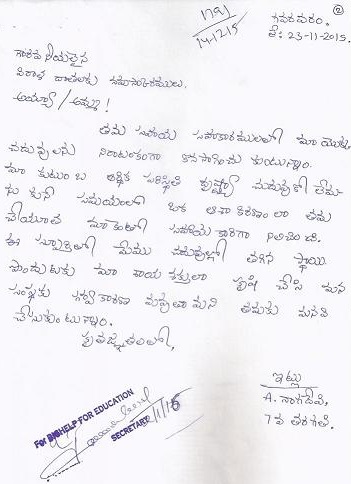 ②
1721
14/12/15
గవరవరం.
తే: 23-11-2015.
గౌరవనీయులైన
విరాళ దాతలకు నమస్కారములు.
అయ్యా / అమ్మా !
తమ సహాయ సహకారములతో మా యొక్క
చదువులను నిరాటంకంగా కొనసాగించు కుంటున్నాం.
మా కుటుంబ ఆర్థిక పరిస్థితి దృష్ట్యా చదువుకో లేమ
ను కునే సమయంలో ఒక ఆశా కిరణం లా తమ
చేయూత మాకెంతో సహాయ కారిగా నిలిచింది.
ఈ స్ఫూర్తితో మేము చదువుల్లో తగిన స్థాయి
పొందుటకు మా శాయ శక్తులా కృషి చేసి మన
సంస్థకు గర్వ కారణ మవుతామని తమకు మనవి
చేసుకుంటున్నాం.
కృతజ్ఞతలతో,
ఇట్లు
A. నాగదేవి,
7 వ తరగతి.
For HELP FOR EDUCATION
SECRETARY